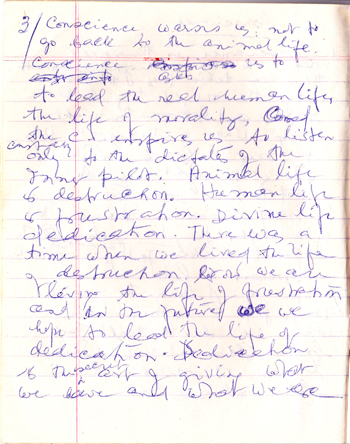 3/ Conscience warns us not to
go back to the animal life.
Conscience inspires us to
asks
to lead the real human life,
the life of morality, Conscience
constantly inspires us to listen
only to the dictates of the
Inner pilot. Animal life
is destruction. Human life
is frustration. Divine life
dedication. There was a
time when we lived the life
of destruction. Now we are
living the life of frustration
and in the future we
hope to lead the life of
dedication. Dedication
is the secret art of giving what
we have and what we are